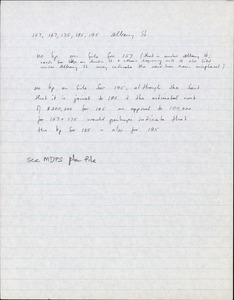 157, 167, 175, 185, 195 Albany St
no bp on file for 157 (that is under Albany St,
under Albany St. may indicate the card has been misplaced)
no bp on file for 195, although the fact
that it is joined to 185 & the estimated cost
of $200,000 for 185 as opposed to 100,000
for 167 & 175 would perhaps indicate that
the bp for 185 is also for 195
see MDPS plan file